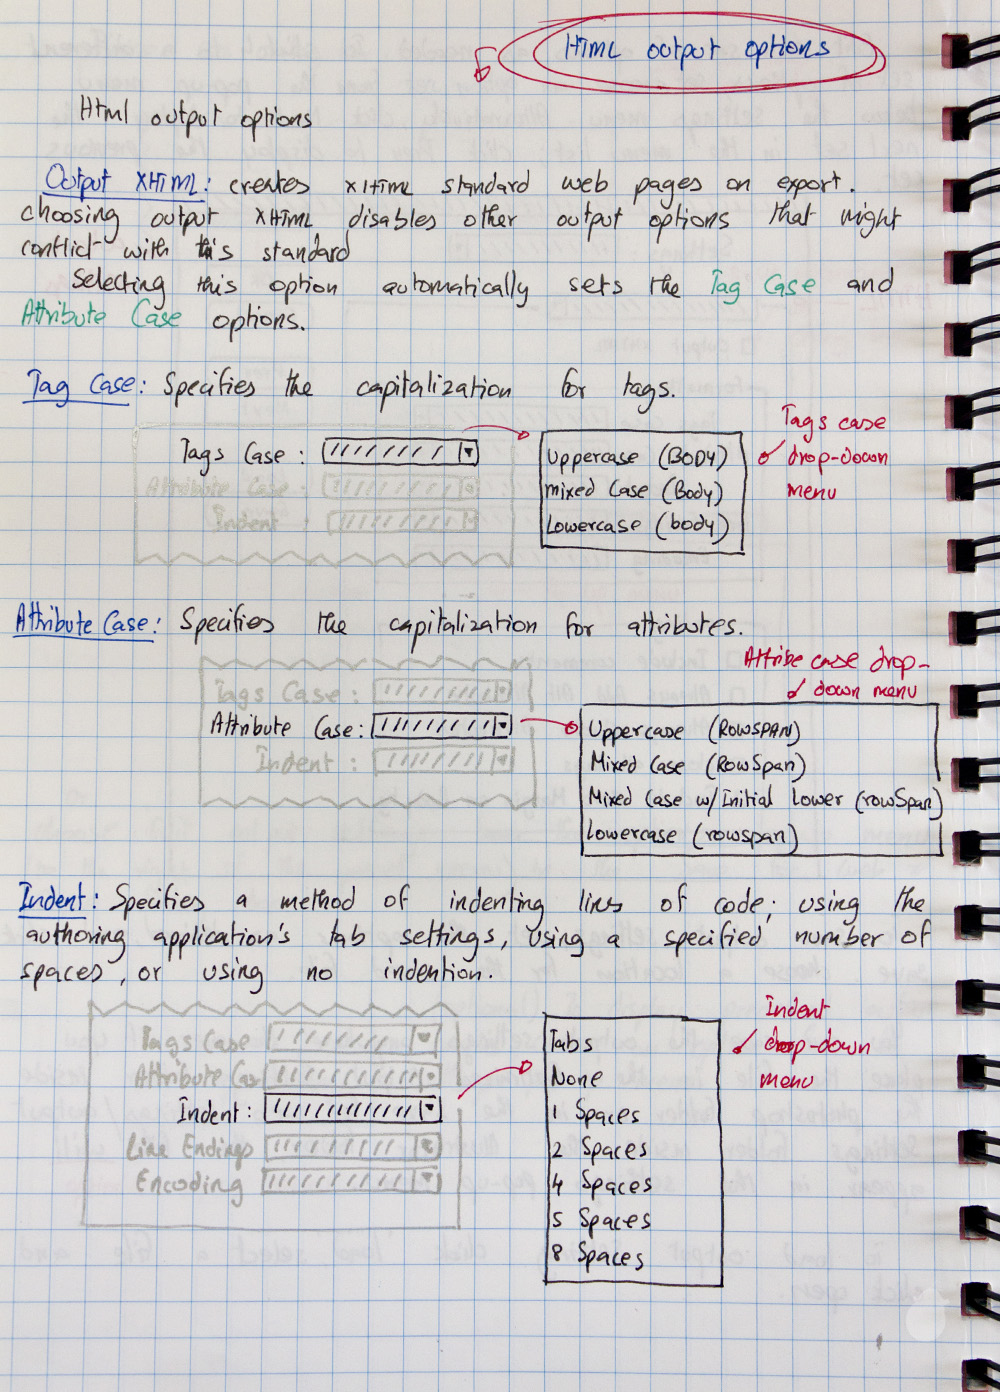 Html output options
Html output options
Output XHTML: creates XHTML standard web pages on export.
choosing output XHTML disables other output options that might
conflict with this standard
Selecting this option automatically sets the Tag Case and
Attribute Case options.
Tag Case: Specifies the capitalization for tags.
Tags Case:
Attribute Case:
Indent :
Uppercase (BODY)
mixed Case (Body)
Lowercase (body)
Tags case
drop-down
menu
Attribute Case: Specifies the capitalization for attributes.
Tags Case:
Attribute Case:
Indent :
Attribe case drop-
down menu
Uppercase (ROWSPAN)
Mixed Case (RowSpan)
Mixed Case w/Initial Lower (rowSpan)
Lowercase (rowspan)
Indent: Specifies a method of indenting lines of code; using the
authoring application's tab settings, using a specified number of
spaces, or using no indention.
Tags Case
Attribute Cas
Indent:
Line Endings
Encoding
Tabs
None
1 Spaces
2 Spaces
4 Spaces
5 Spaces
8 Spaces
Indent
drop-down
menu